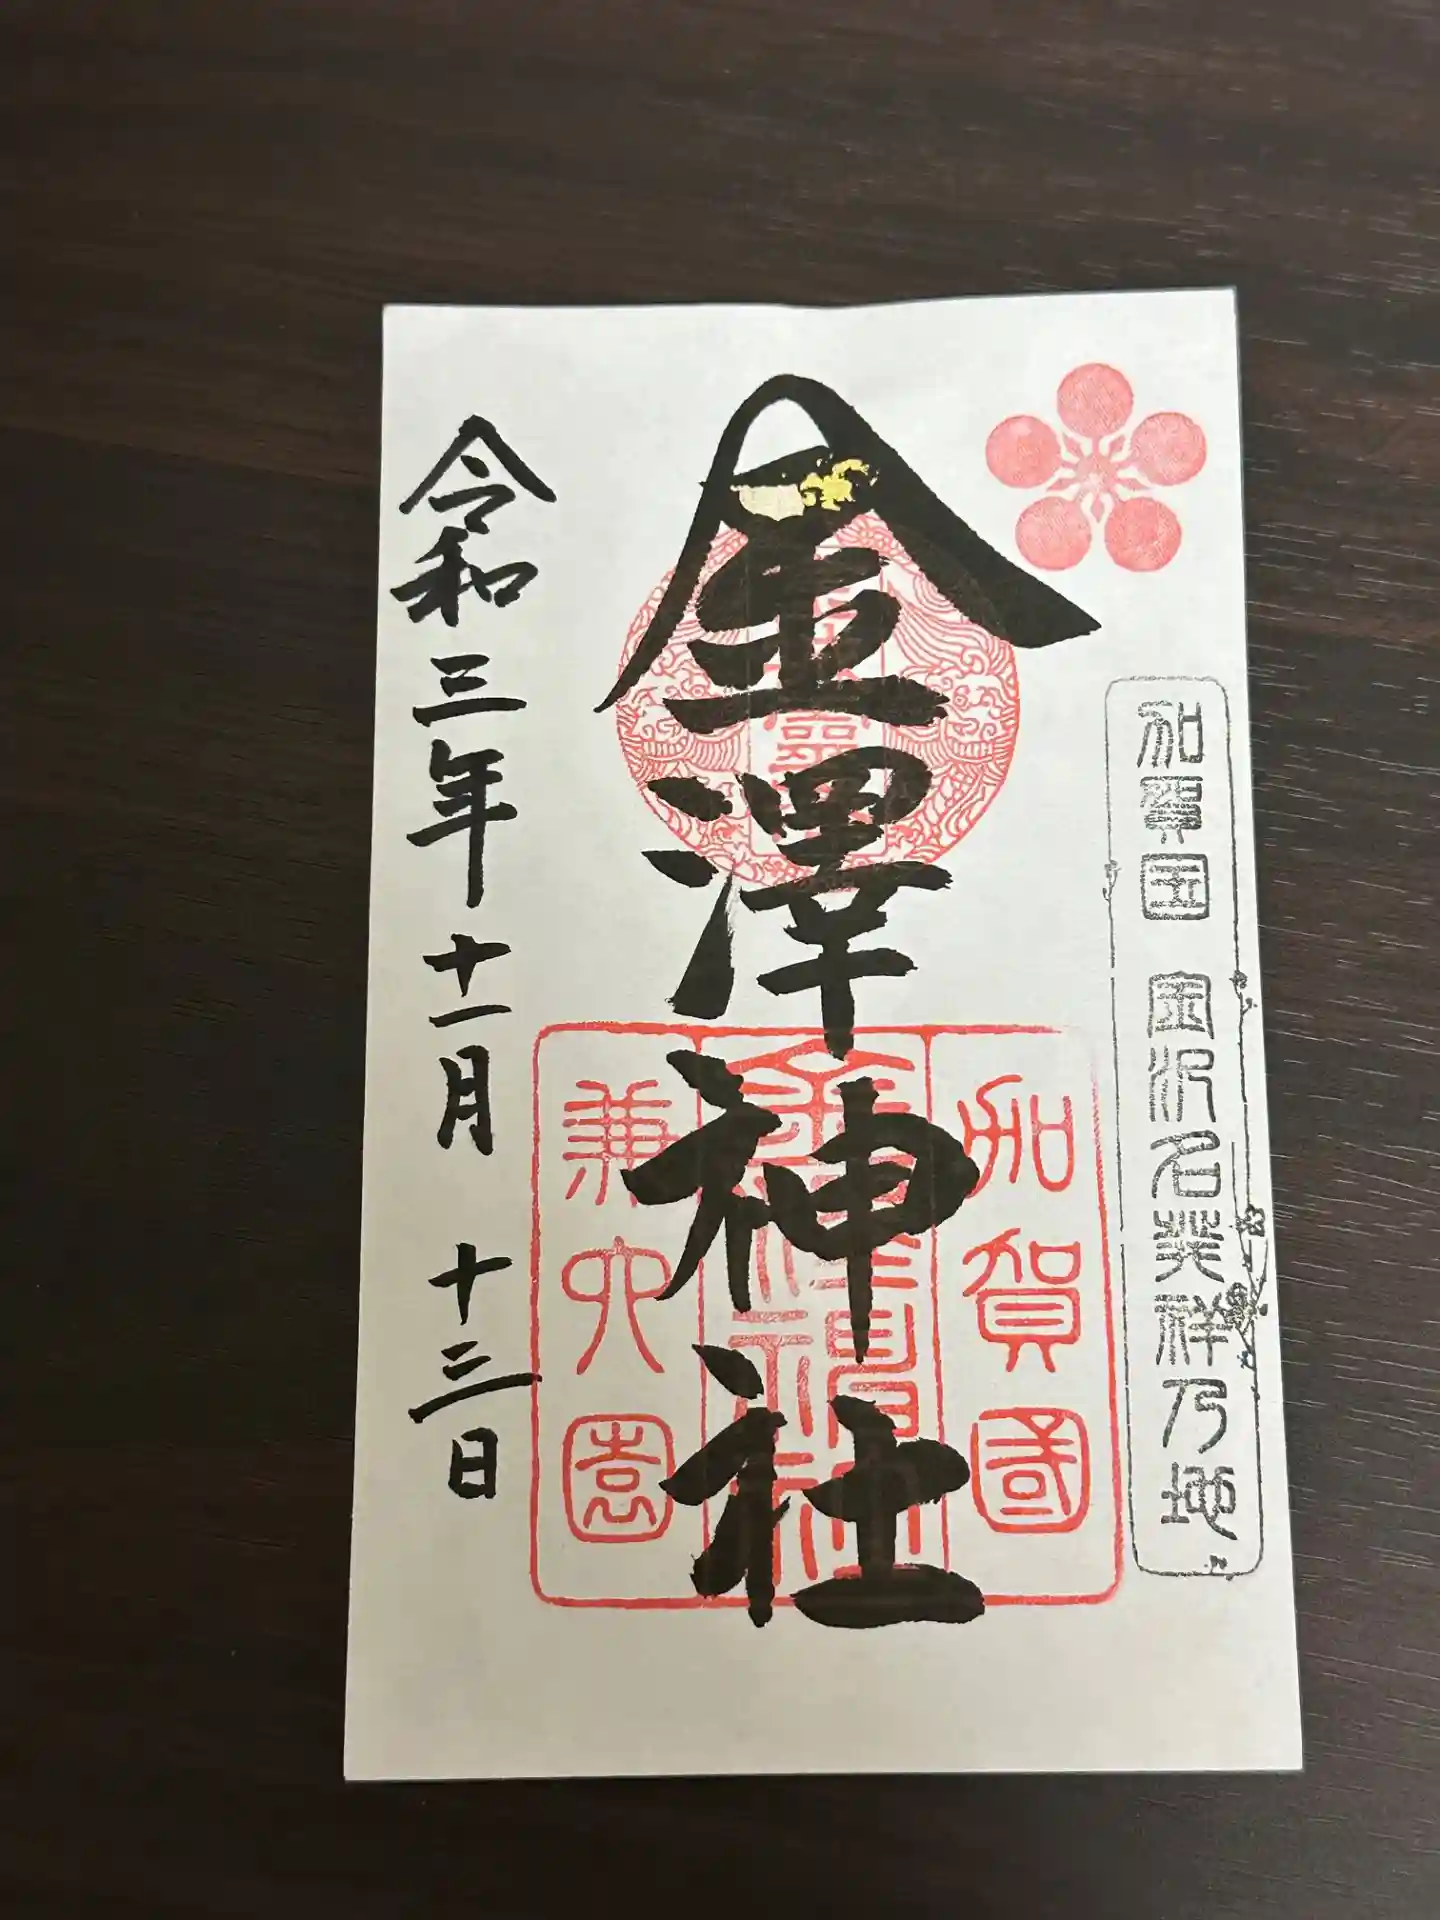 加賀国 金沢名発祥乃地
金澤神社
加賀國
兼六園
令和三年十一月 十三日